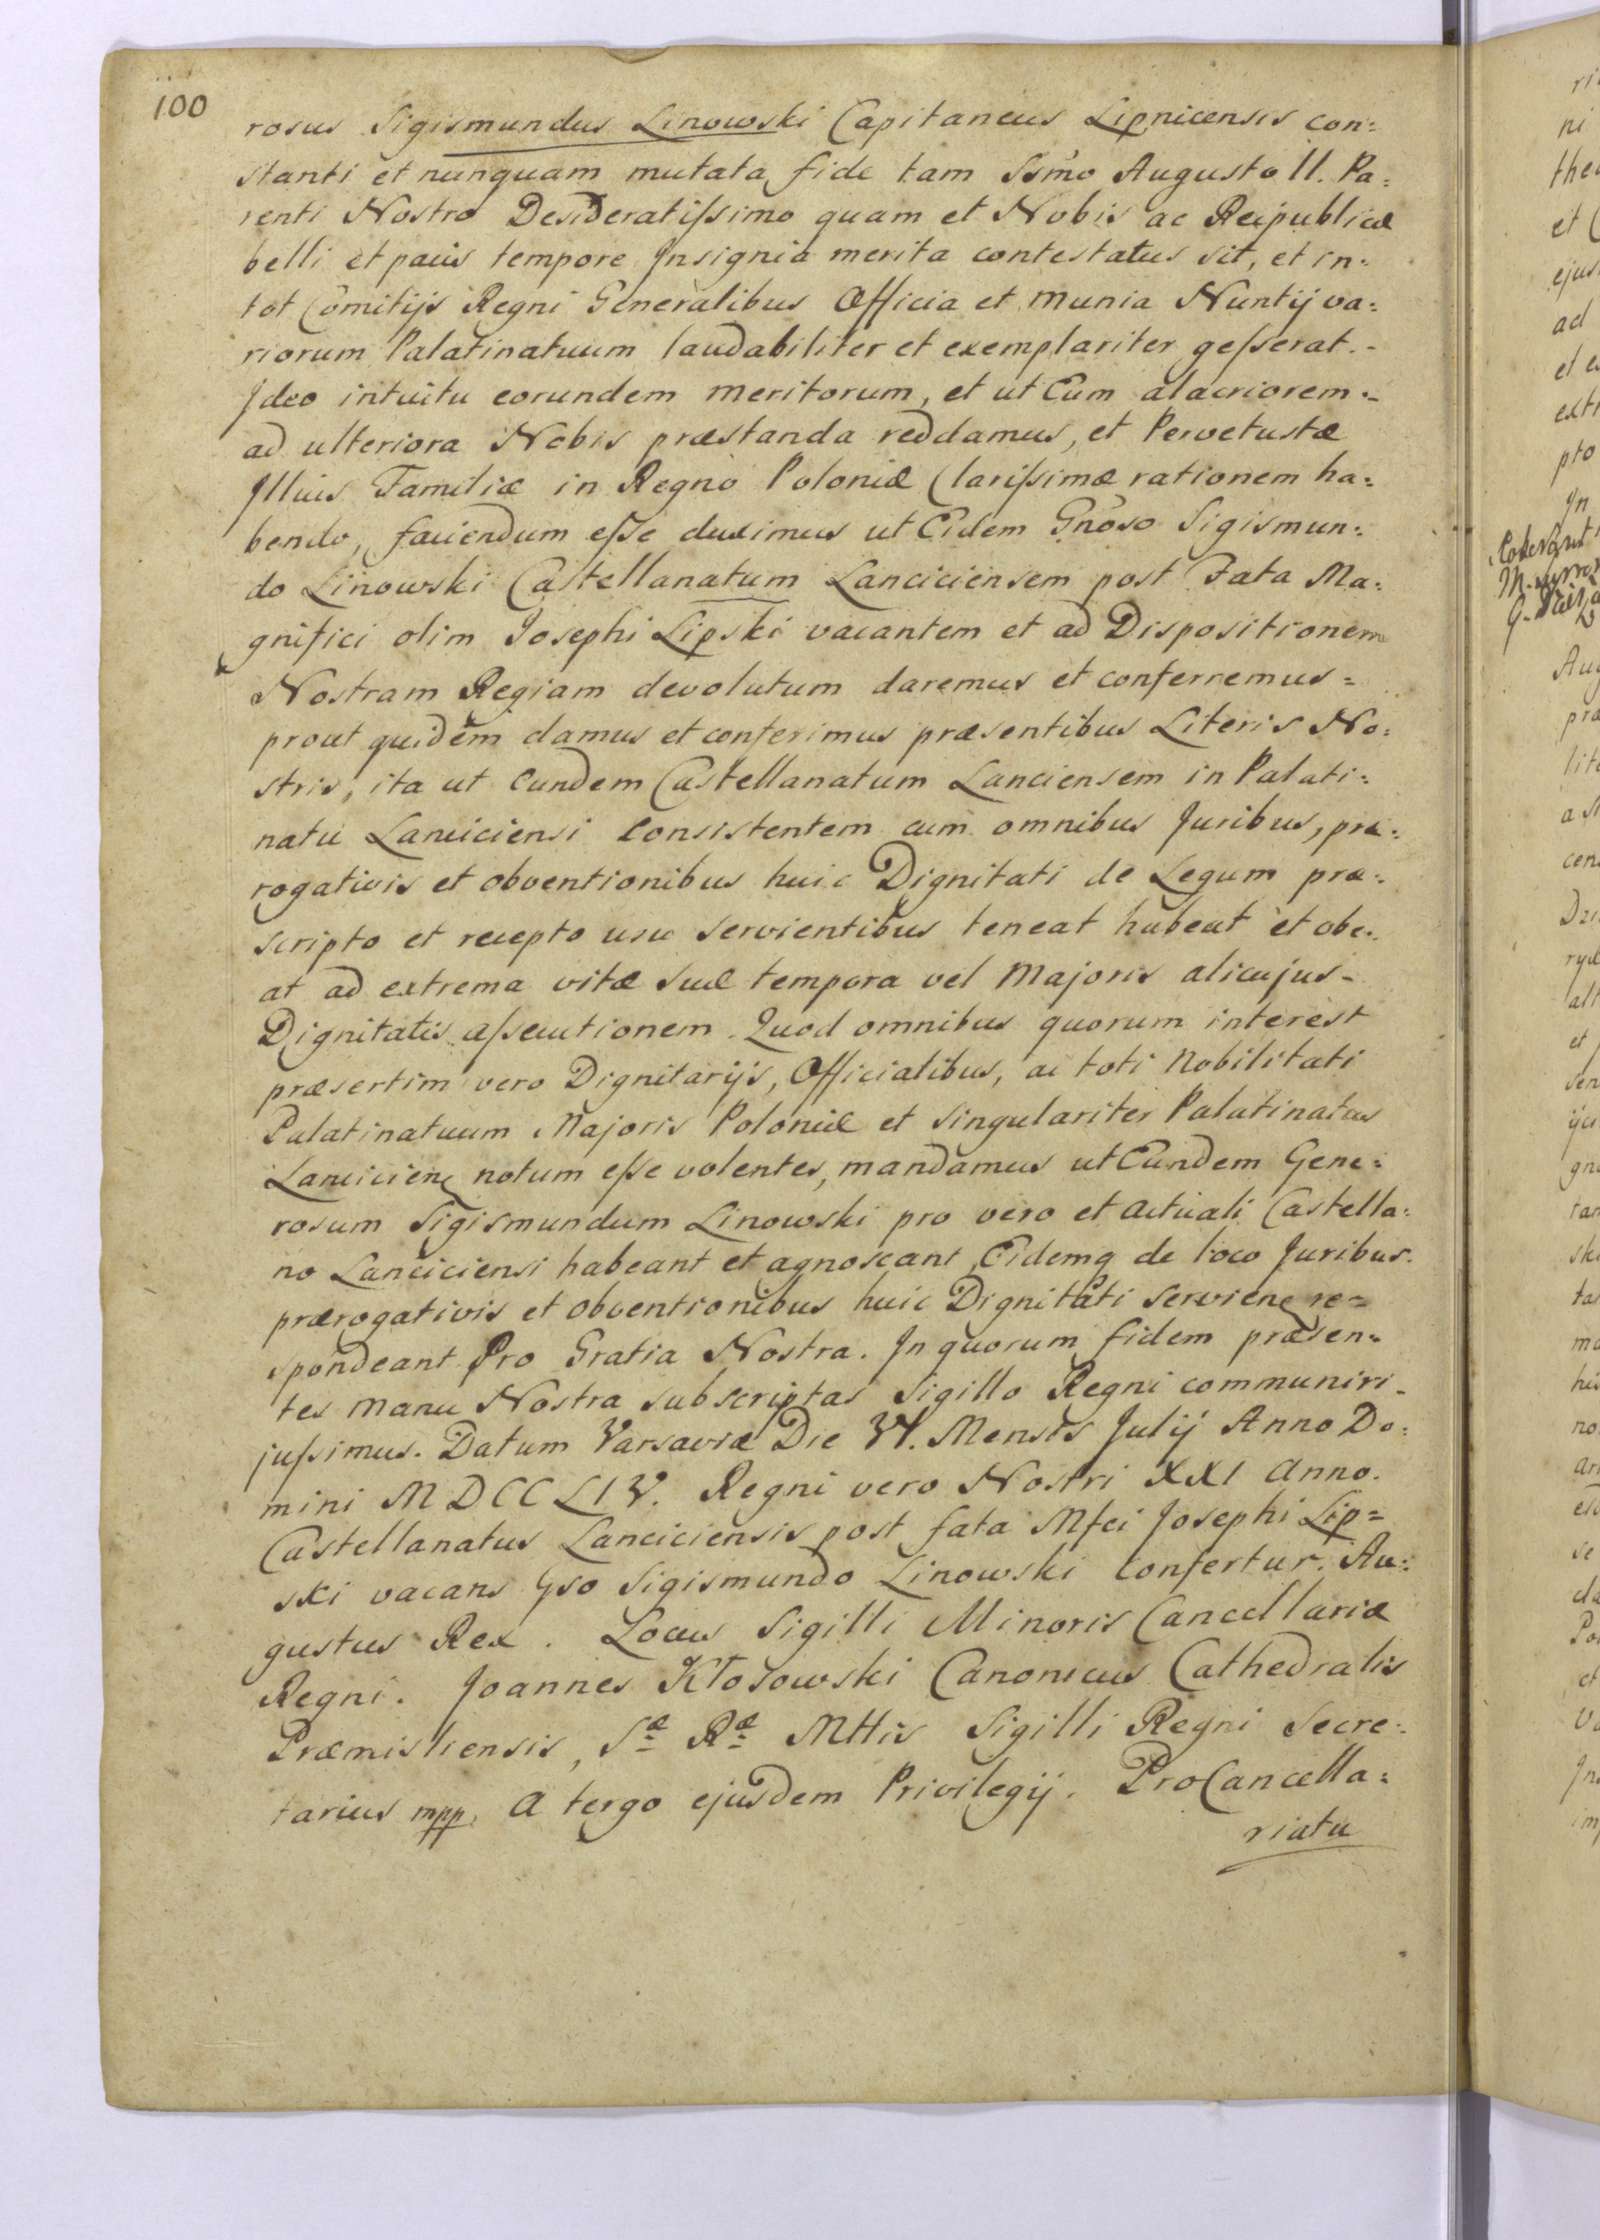 100
rosus Sigismundus Linowski Capitaneus Lipnicensis con=
stanti et nunquam mutata fide tam Ssmo Augusto II. Pa=
renti Nostro Desideratissimo quam et Nobis ac Reipublicæ
belli et pacis tempore Insignia merita contestatus sit, et in=
tot Comitijs Regni Generalibus Officia et munia Nuntij va=
riorum Palatinatuum laudabiliter et exemplariter gesserat.-
Ideo intuitu eorundem meritorum, et ut Eum alacriorem=
ad ulteriora Nobis præstanda reddamus, et Pervetustæ
Illius Familiæ in Regno Poloniæ Clarissimæ rationem ha=
bendo, faciendum esse duximus ut Eidem Gnoso Sigismun=
do Linowski Castellanatum Lanciciensem post Fata Ma=
gnifici olim Josephi Lipski vacantem et ad Dispositionem
Nostram Regiam devolutum daremus et conferremus=
prout quidem damus et conferimus præsentibus Literis No=
stris, ita ut Eundem Castellanatum Lanciensem in Palati=
natu Lanciciensi consistentem cum omnibus Juribus, præ=
rogativis et obventionibus huic Dignitati de Legum præ=
scripto et recepto usu servientibus teneat habeat et obe=
at ad extrema vitæ suæ tempora vel Majoris alicujus-
Dignitatis assecutionem. Quod omnibus quorum interest
præsertim vero Dignitarijs, Officialibus, ac toti Nobilitati
Palatinatuum Majoris Poloniæ et singulariter Palatinatus
Lancicien notum esse volentes, mandamus ut Eundem Gene=
rosum Sigismundum Linowski pro vero et actuali Castella=
no Lanciciensi habeant et agnoscant, Eidemq de loco Juribus
prærogativis et obventionibus huic Dignitati servien re=
spondeant Pro Gratia Nostra. In quorum fidem præsen=
tes manu Nostra subscriptas Sigillo Regni communiri-
jussimus. Datum Varsaviæ Die VI. Mensis Julij Anno Do=
mini MDCCLIV. Regni vero Nostri XXI anno.
Castellanatus Lanciciensis post fata Mfci Josephi Lip=
ski vacans Gso Sigismundo Linowski confertur. Au=
gustus Rex. Locus Sigilli Minoris Cancellariæ
Regni. Joannes Kłosowski Canonicus Cathedralis
Præmisliensis, Sæ Ræ Mttis Sigilli Regni Secre=
tarius mpp. A tergo ejusdem Privilegij. ProCancella=
riatu